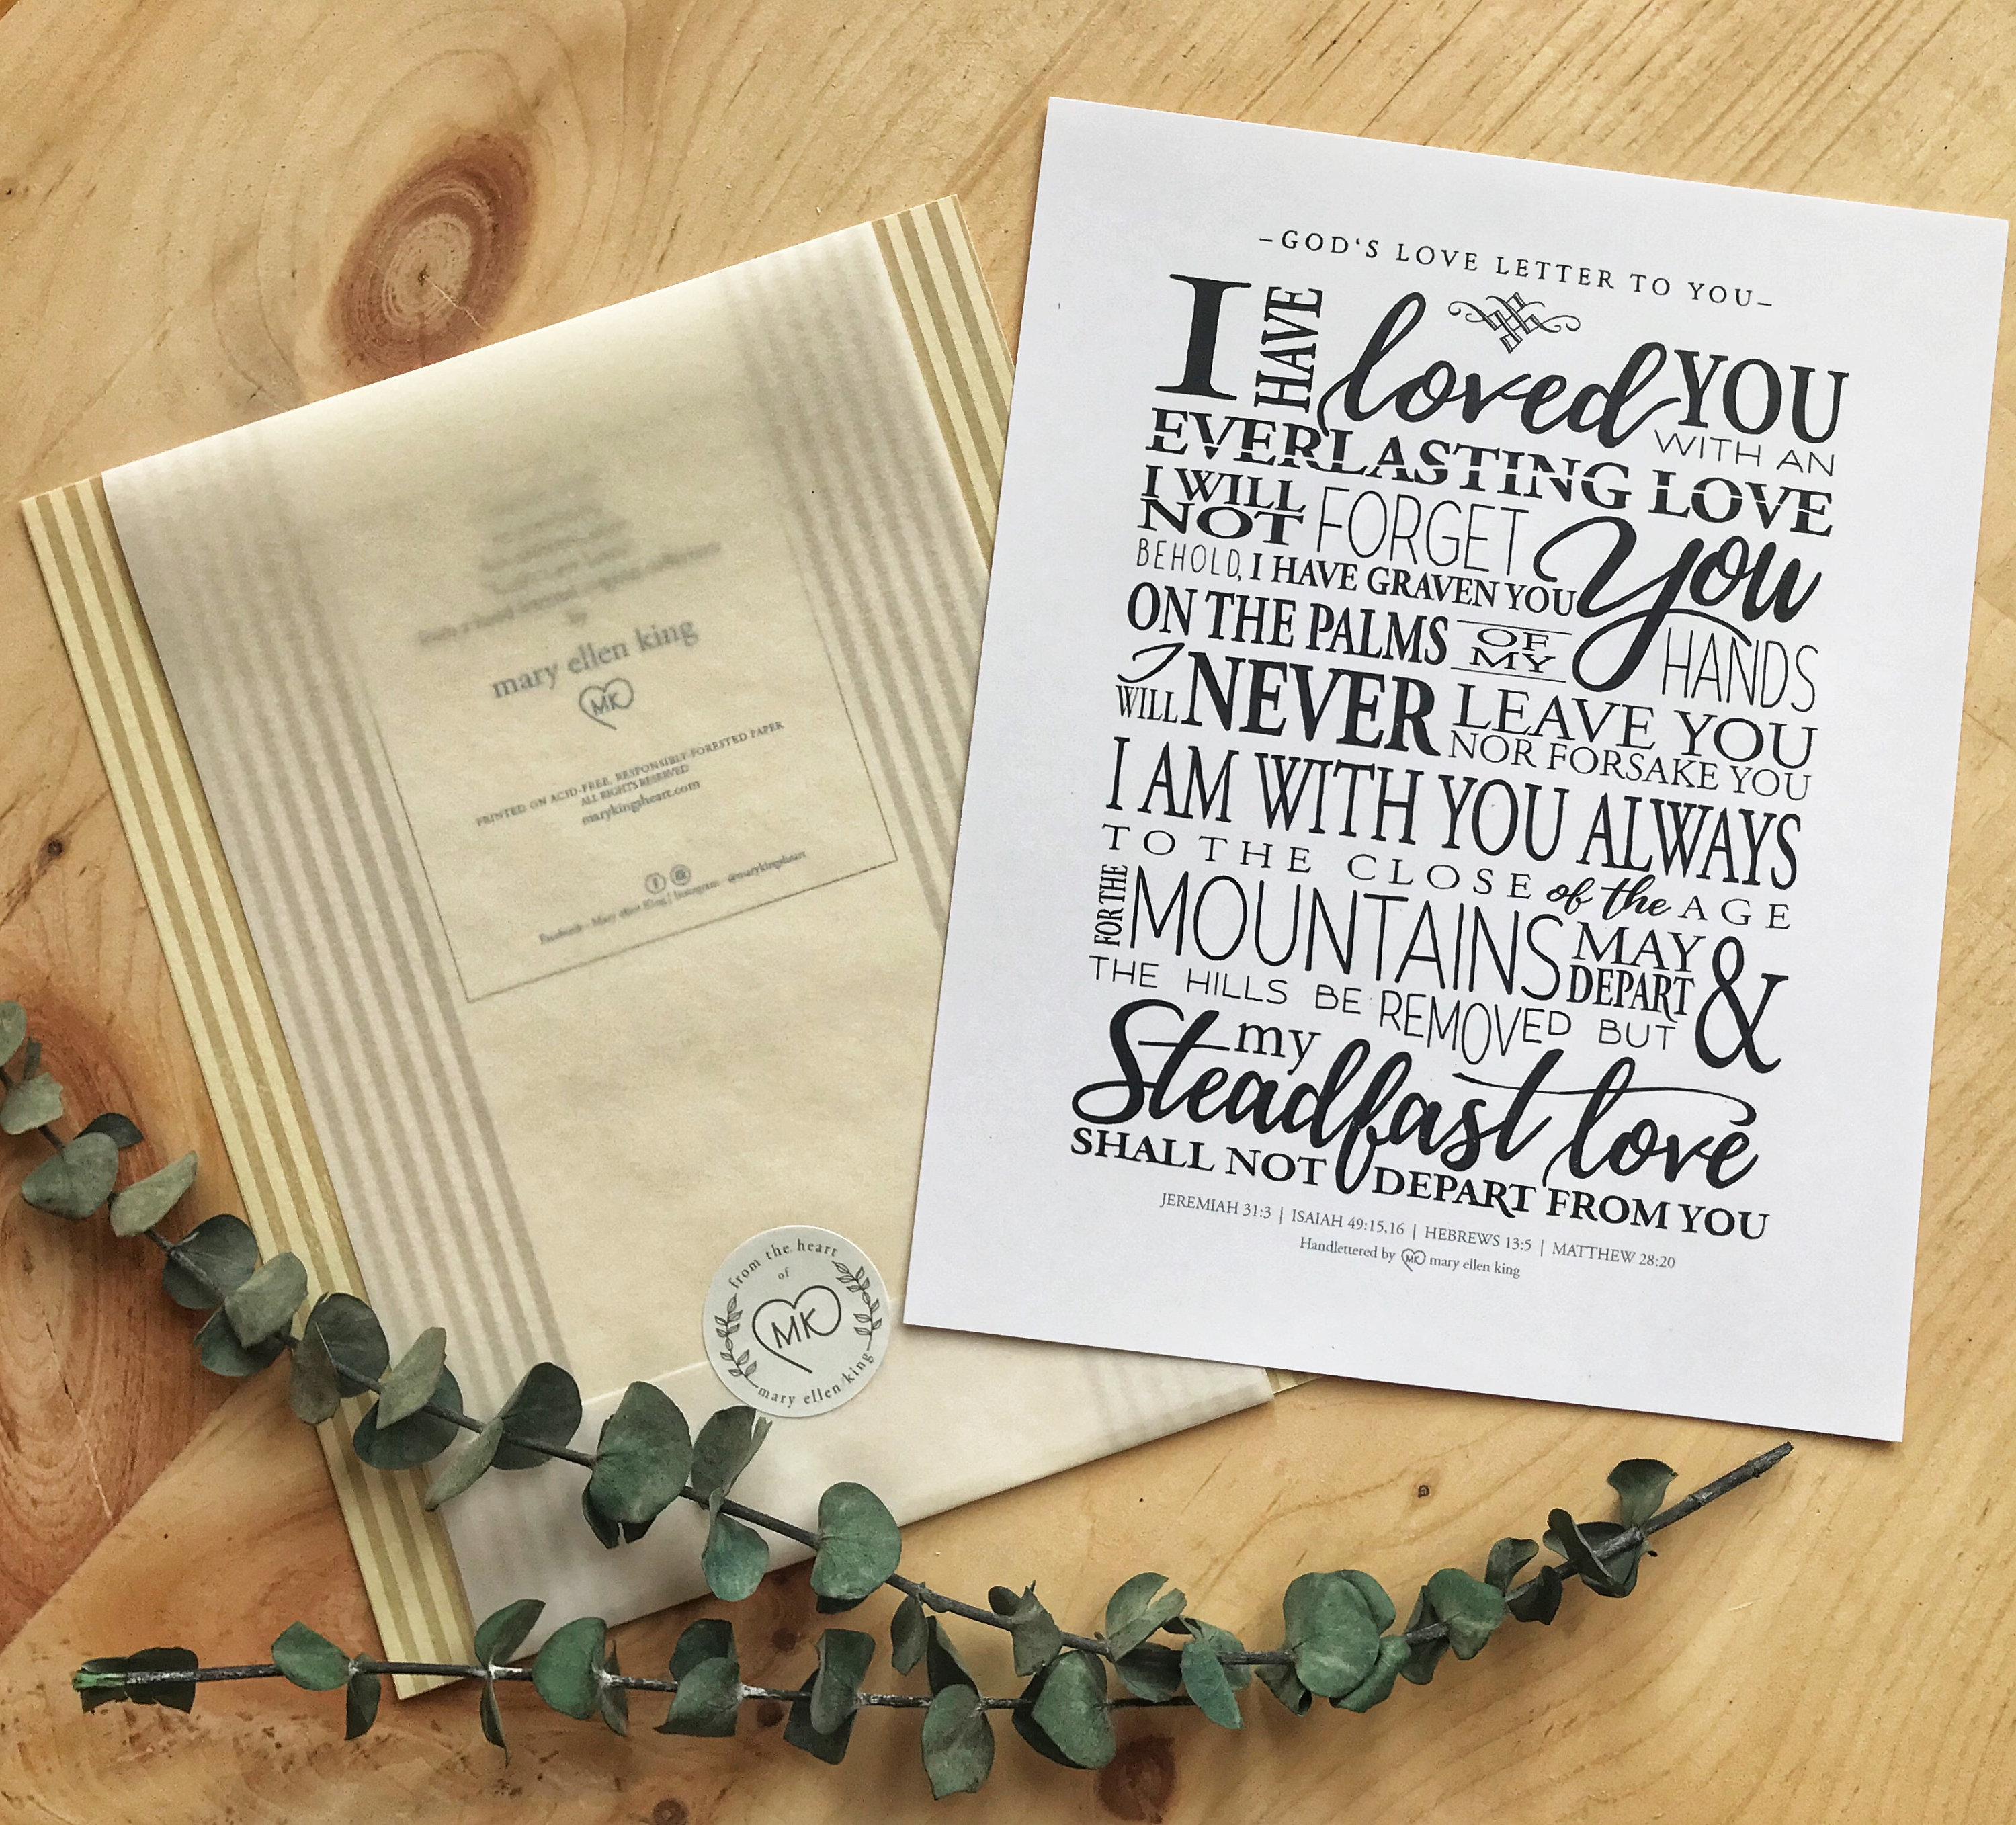 -GOD'S LOVE LETTER TO YOU-
I HAVE loved YOU
WITH AN
EVERLASTING LOVE
I WILL NOT FORGET You
BEHOLD, I HAVE GRAVEN YOU
ON THE PALMS OF MY HANDS
I WILL NEVER LEAVE YOU
NOR FORSAKE YOU
I AM WITH YOU ALWAYS
TO THE CLOSE of the AGE
FOR THE MOUNTAINS MAY DEPART &
THE HILLS BE REMOVED BUT
my
Steadfast love
SHALL NOT DEPART FROM YOU
JEREMIAH 31:3 | ISAIAH 49:15,16 | HEBREWS 13:5 | MATTHEW 28:20
Handlettered by MK mary ellen king
by
mary ellen king
MK
PRINTED ON ACID-FREE, RESPONSIBLY-FORESTED PAPER
ALL RIGHTS RESERVED
marykingsheart.com
Facebook - Mary ellen King | Instagram - @marykingsheart
from the heart
of
MK
mary ellen king